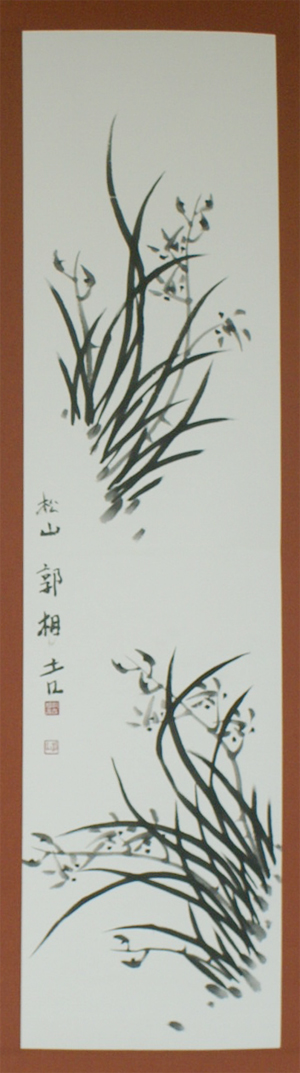 松山 郭相吉